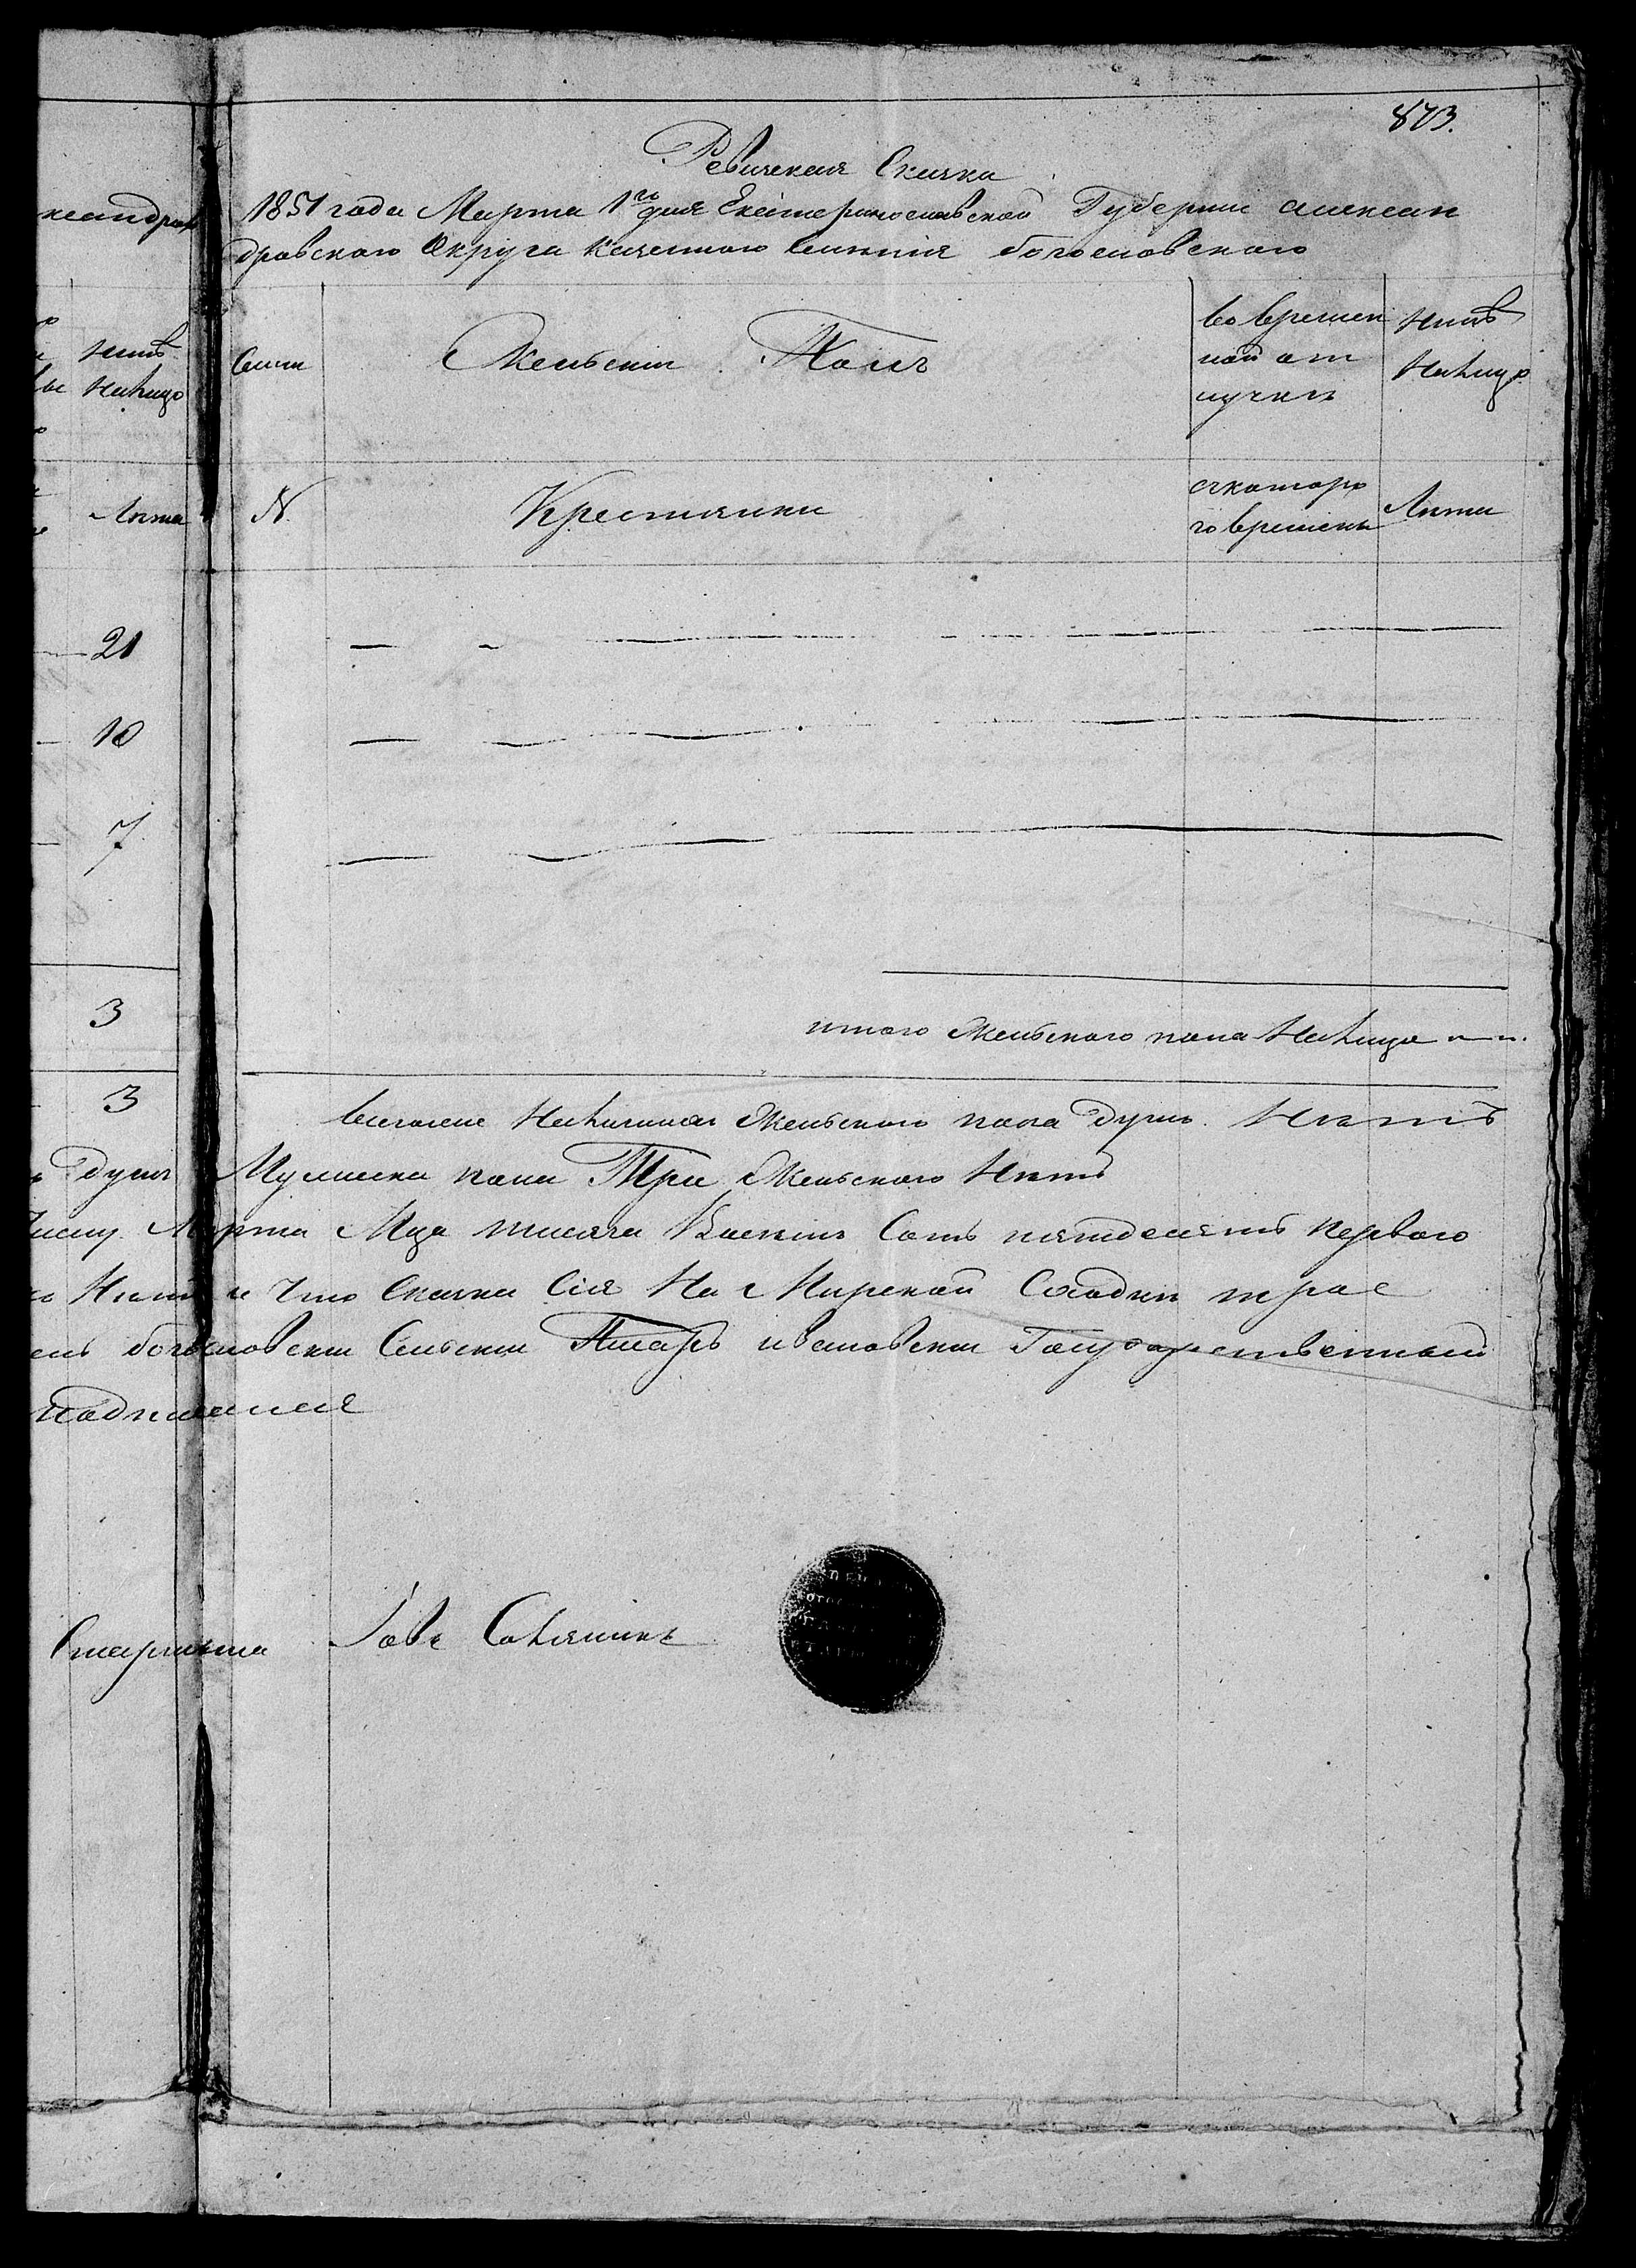 873.
Ревизская Сказка
1851 года Марта 1го дня Екатеринославской Губернии Алексан
дровского Округа Казенного Селения богословского
ксандров
Семи
Женский Полъ
во времен
ной от
лучки
Нинѣ
Налицо
Нинѣ
Налицо
Лѣта
N
Крестянки
скоторо
го времени
Лѣта
21
10
7
3
итого Женского пола Налицо
3
Всеголе Наличная Женского пола Душъ Нетъ
Душъ Мужеска пола Три Женского Нетъ
Числу Марта Мца тисяча Восемь Сотъ пятдесятъ первого
Нетъ и Что Сказка Сія На Мирской Сходки
богословски Сельски Писарь Государственной
подписался
Старшина Іовъ